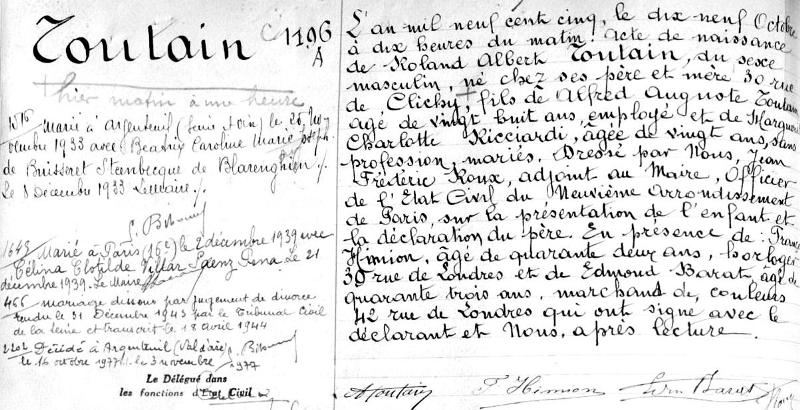 Toutain
1496
A
hier matin à une heure
Marié à Argenteuil (Seine et Oise) le 26 Nov
embre 1933 avec Beatrix Caroline Marie Joseph
de Buisseret Steenbecque de Blarenghien
Le 8 Décembre 1933
1645 Marié à Paris (16e) le 2 décembre 1939 avec
Célina Clotilde Villar Saenz Pena Le 21
décembre 1939. Le Maire
466 mariage dessous par jugement de divorce
rendu le 31 Décembre 1943 par le Tribunal Civil
de la Seine et transcrit le 18 avril 1944
2202 Décédé à Argenteuil (Val d'Oise)
le 16 octobre 1977. le 3 novembre
1977
Le Délégué dans
les fonctions d'Etat Civil
L'an mil neuf cent cinq, le dix neuf Octobre
à dix heures du matin. acte de naissance
de Roland Albert Toutain, du sexe
masculin, né chez ses père et mère 30 rue
de Clichy, fils de Alfred Auguste Toutain
agé de vingt huit ans, employé et de Margue
Charlotte Ricciardi, âgée de vingt ans, sans
profession, mariés. Dressé par Nous, Jean
Frédéric Roux, adjoint au Maire, Officier
de l'Etat Civil du Neuvième Arrondissement
de Paris, sur la présentation de l'enfant et
la déclaration du père. En présence de: Franç
Himion, âgé de quarante deux ans, horloger
30 rue de Londres et de Edmond Barat, âgé de
quarante trois ans, marchand de couleurs
42 rue de Londres qui ont signé avec le
déclarant et Nous, après lecture.
A Toutain F. Himion Edm Barat Roux